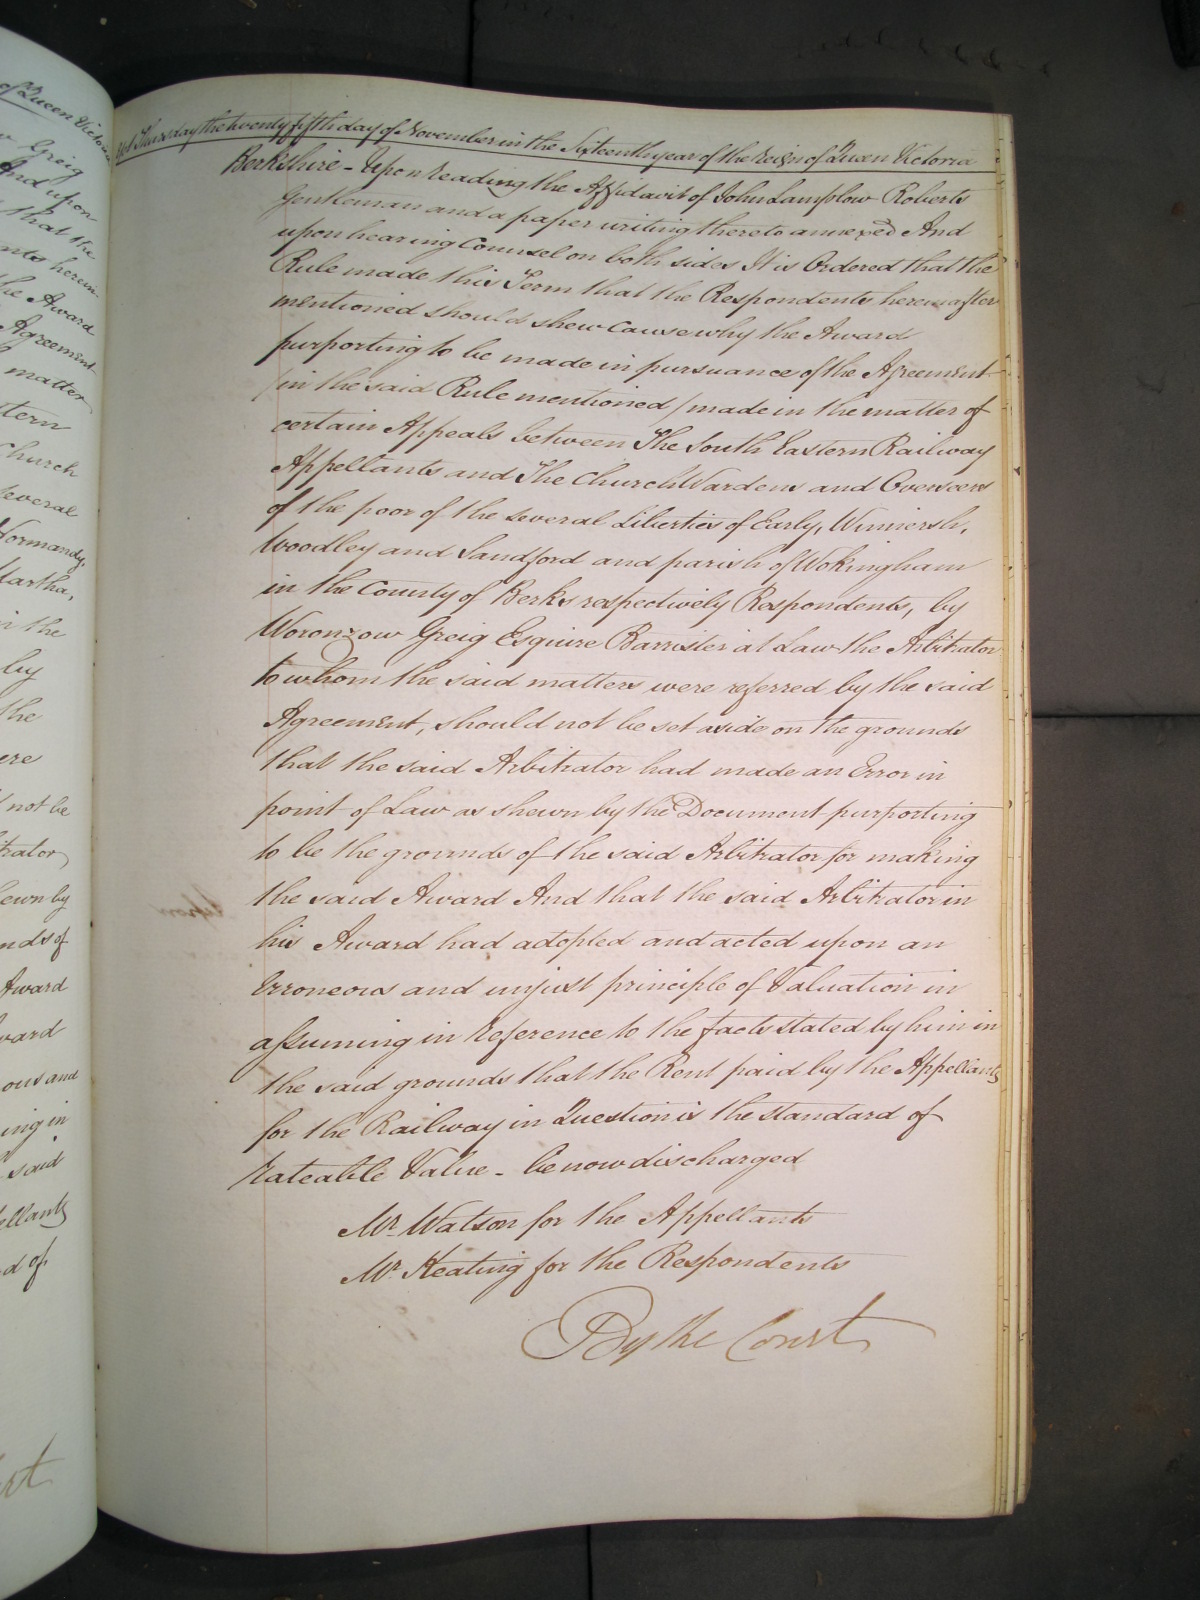 of Queen Victoria
Greig
And upon
that the
nts herein
the Award
Agreement
matter
stern
Church
several
Normandy,
Martha,
in the
by
the
ere
not be
trator
ewn by
nds of
Award
ward
ous and
ing in
said
ellants
d of
rt
Thursday the twenty fifth day of November in the Sixteenth year of the reign of Queen Victoria
Berkshire - Upon reading the Affidavit of John Lamplow Roberts
Gentleman and a paper writing thereto annexed And
upon hearing Counsel on both sides It is Ordered that the
Rule made this Term that the Respondents hereinafter
mentioned should shew cause why the Award
purporting to be made in pursuance of the Agreement
/in the said Rule mentioned/ made in the matter of
certain Appeals between The South Eastern Railway
Appellants and The Church Wardens and Overseers
of the poor of the several Liberties of Early, Winnersh,
Woodley and Sandford and parish of Wokingham
in the County of Berks respectively Respondents, by
Woronzow Greig Esquire Barrister at Law the Arbitrator
to whom the said matters were referred by the said
Agreement, should not be set aside on the grounds
that the said Arbitrator had made an Error in
point of Law as shewn by the Document purporting
to be the grounds of the said Arbitrator for making
the said Award And that the said Arbitrator in
his Award had adopted and acted upon an
Erroneous and unjust principle of Valuation in
assuming in reference to the facts stated by him in
the said grounds that the Rent paid by the Appellants
for the Railway in Question is the standard of
rateable Value - be now discharged
Mr. Watson for the Appellants
Mr. Keating for the Respondents
By the Court